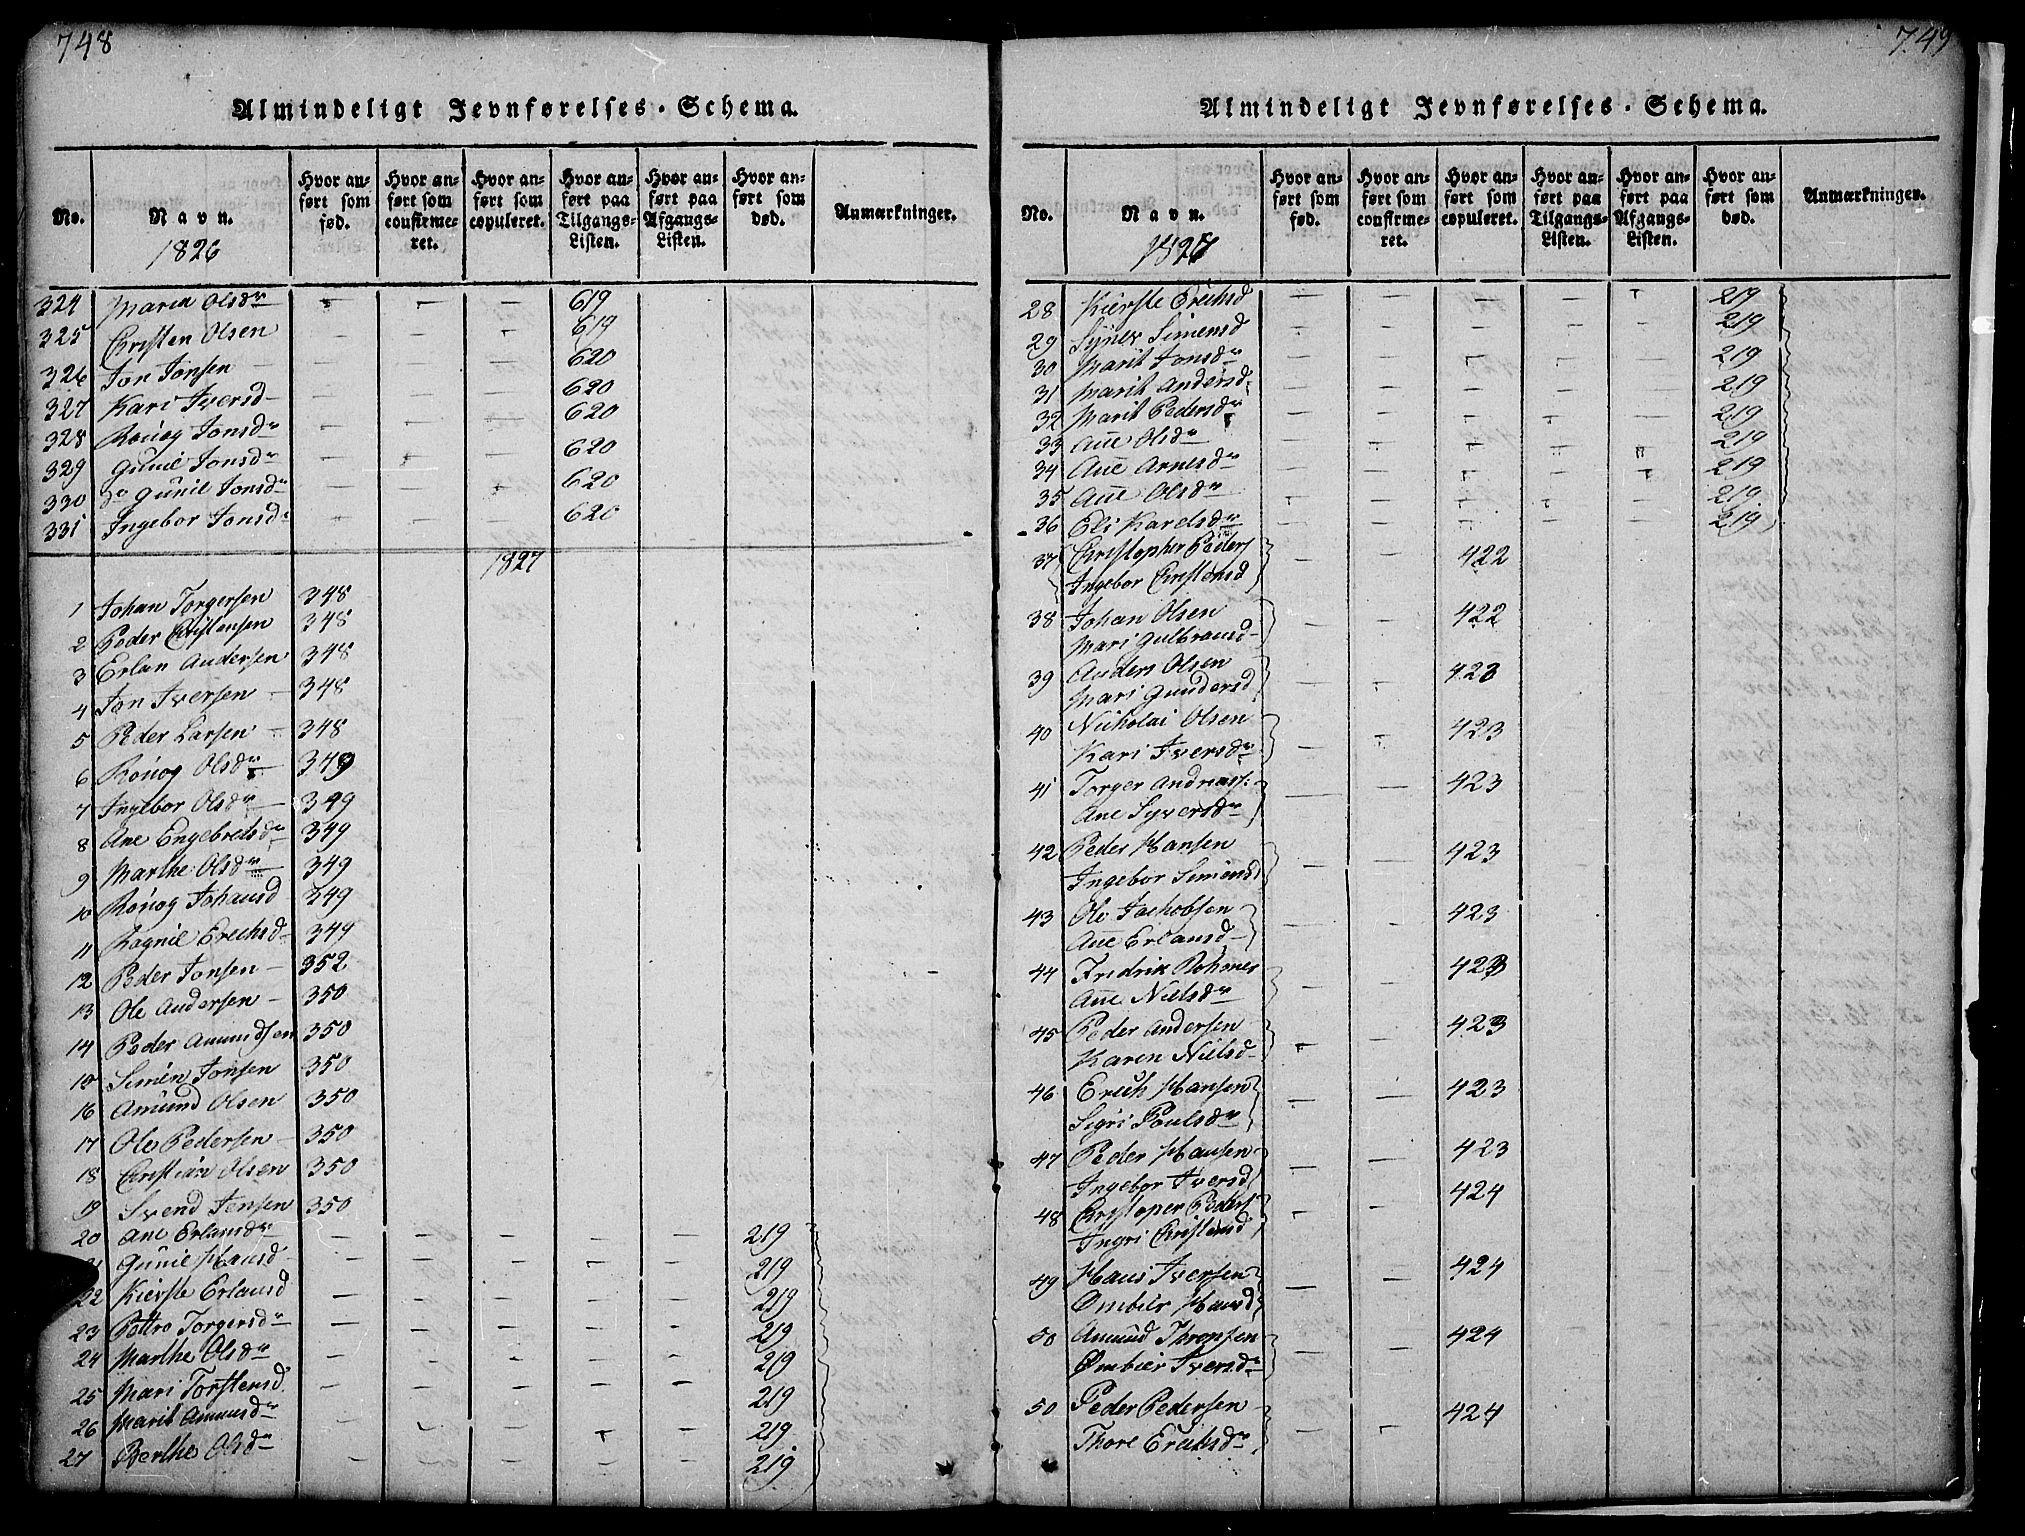 748
Almindeligt Jevnførelses-Schema.
No. Navn. Hvor anført som fød. Hvor anført som confirmeret. Hvor anført som copuleret. Hvor anført paa Tilgangs-Listen. Hvor anført paa Afgangs-Listen. Hvor anført som død. Anmærkninger.
1826
324 Maren Olsdr — — — 619
325 Christen Olsen — — — 619
326 Jon Jonsen — — — 620
327 Kari Iversd — — — 620
328 Rönog Jonsdr — — — 620
329 Gunil Jonsdr — — — 620
330 do Gunil Jonsdr — — — 620
331 Ingebor Jonsdr — — — 620
1827
1 Johan Torgersen 348
2 Peder Christensen 348
3 Erlan Andersen 348
4 Jon Iversen 348
5 Peder Larsen 348
6 Rönog Olsdr 349
7 Ingebor Olsdr 349
8 Ane Engebretsdr 349
9 Marthe Olsdr 349
10 Rönog Johansd 349
11 Ragnil Erechsd 349
12 Peder Jonsen 352
13 Ole Andersen 350
14 Peder Amundsen 350
15 Simen Jonsen 350
16 Amund Olsen 350
17 Ole Pedersen 350
18 Christian Olsen 350
19 Svend Jensen 350
20 Ane Erlansdr — — — — — 219
Gunil Hansd — — — — — 219
22 Kierste Erlansd — — — — — 219
23 Torgersdr — — — — — 219
24 Marthe Olsdr — — — — — 219
25 Mari Torstensd — — — — — 219
26 Marit Amunsdr — — — — — 219
27 Berthe Olsdr — — — — — 219
749
Almindeligt Jevnførelses-Schema.
No. Navn. Hvor anført som fød. Hvor anført som confirmeret. Hvor anført som copuleret. Hvor anført paa Tilgangs-Listen. Hvor anført paa Afgangs-Listen. Hvor anført som død. Anmærkninger.
1827
28 Kierste Erechsd — — — — — 219
29 Simensd — — — — — 219
30 Marit Jonsdr — — — — — 219
31 Marit Andersd — — — — — 219
32 Marit Pedersdr — — — — — 219
33 Ane Olsdr — — — — — 219
34 Ane Arnesdr — — — — — 219
35 Ane Olsdr — — — — — 219
36 Eli Karelsdr — — — — — 219
37 Christopher Peders 422
Ingebor Christensd
38 Johan Olsen — — 422
Mari Gulbransd
39 Anders Olsen — — 423
Mari Gundersd
40 Nicholai Olsen — — 423
Kari Iversdr
41 Torger Andreass: — — 423
Ane Syversdr
42 Peder Hansen — — 423
Ingebor Simensd
43 Ole Jachobsen — — 423
Ane Erlansd
44 Fredrik Rohmer — — 423
Ane Nielsdr
45 Peder Andersen — — 423
Karen Nielsd
46 Erich Hansen — — 423
Sigri Poulsdr
47 Peder Hansen — — 423
Ingebor Iversd
48 Christoper Peders — — 424
Ingri Christensd
49 Hans Iversen — — 424
Ømbier Hansd
50 Amund Thronsen — — 424
Ømbier Iversdr
50 Peder Pedersen — — 424
Thore Erichsdr